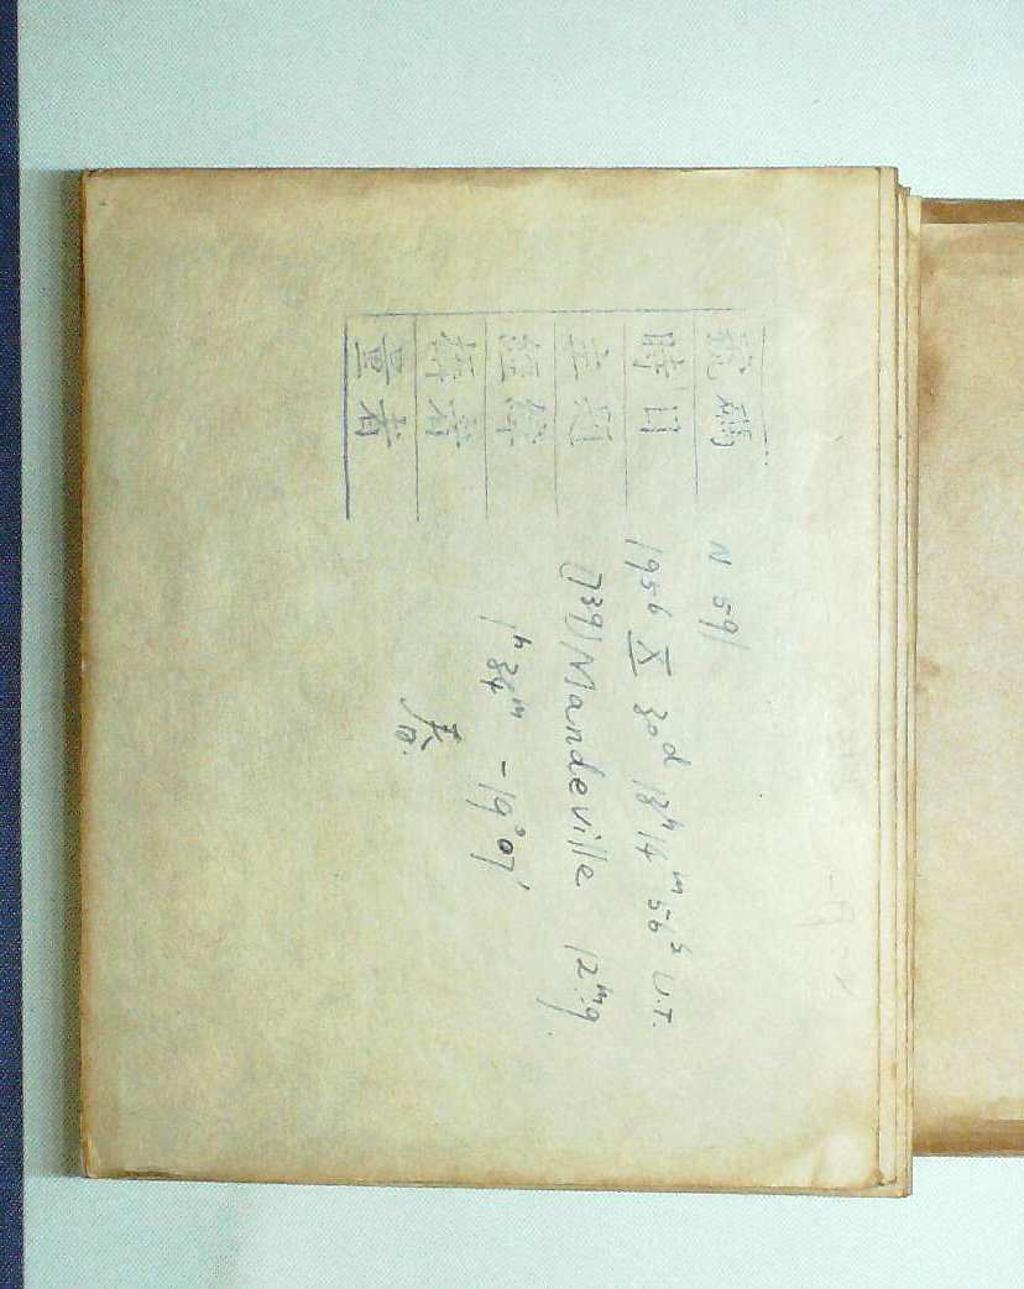 號碼 N 591
時日 1956 X 30d 13h 14m 56s U.T.
主题 (739) Mandeville 12m.9
經緯 1h 34m -19°07'
攝者
量者